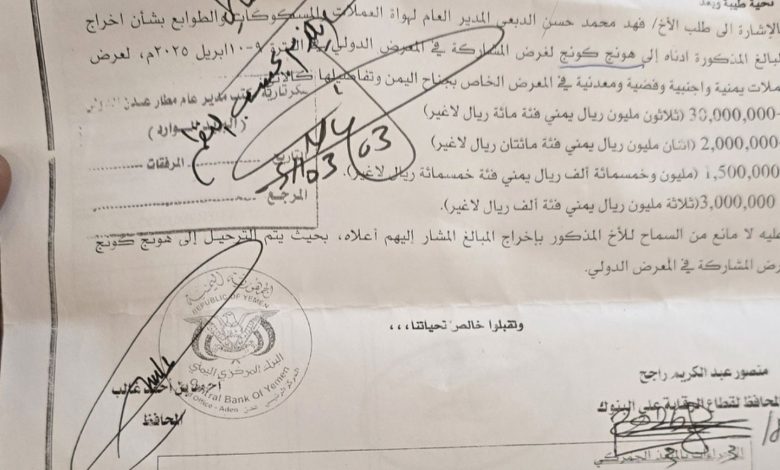 تحية طيبة وبعد
بالإشارة الى طلب الأخ/ فهد محمد حسن الدبعي المدير العام لهواة العملات المسكوكات والطوابع بشأن اخراج
المبالغ المذكورة أدناه إلى هونج كونج لغرض المشاركة في المعرض الدولي ٩-١٠ ابريل ٢٠٢٥م، لعرض
عملات يمنية واجنبية وفضية ومعدنية في المعرض الخاص بجناح اليمن وتفاصيلها
30,000,000 (ثلاثون مليون ريال يمني فئة مائة ريال لاغير)
2,000,000 (اثنان مليون ريال يمني فئة مائتان ريال لاغير)
1,500,000 (مليون وخمسمائة ألف ريال يمني فئة خمسمائة ريال لاغير).
3,000,000 (ثلاثة مليون ريال يمني فئة ألف ريال لاغير).
عليه لا مانع من السماح للأخ المذكور بإخراج المبالغ المشار إليهم أعلاه، بحيث يتم الترحيل إلى هونج كونج
لغرض المشاركة في المعرض الدولي.
مكتب مدير عام مطار عدن الدولي
المرفقات
التاريخ
03
المرجع
ولقبلوا خالص تحياتنا،،،
منصور عبد الكريم راجح
المحافظ لقطاع الرقابة على البنوك
أحمد بن أحمد غالب
المحافظ
الجمهورية اليمنية
REPUBLIC OF YEMEN
البنك المركزي اليمني
Central Bank Of Yemen
Head Office - Aden